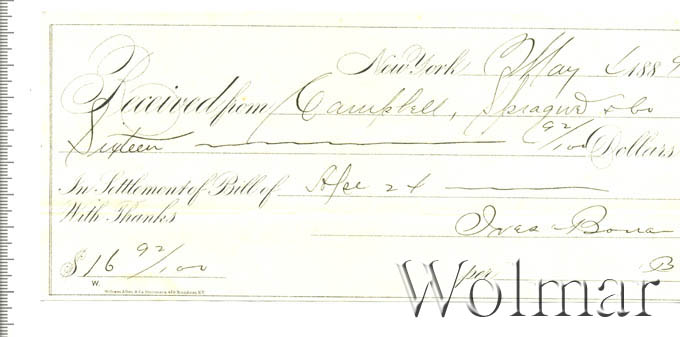 New York, May 4 1889
Received from Campbell, Sprague & Co
Sixteen 92/100 Dollars
In Settlement of Bill of Apl 24
With Thanks
$ 16 92/100
per B
W.
Wolmar